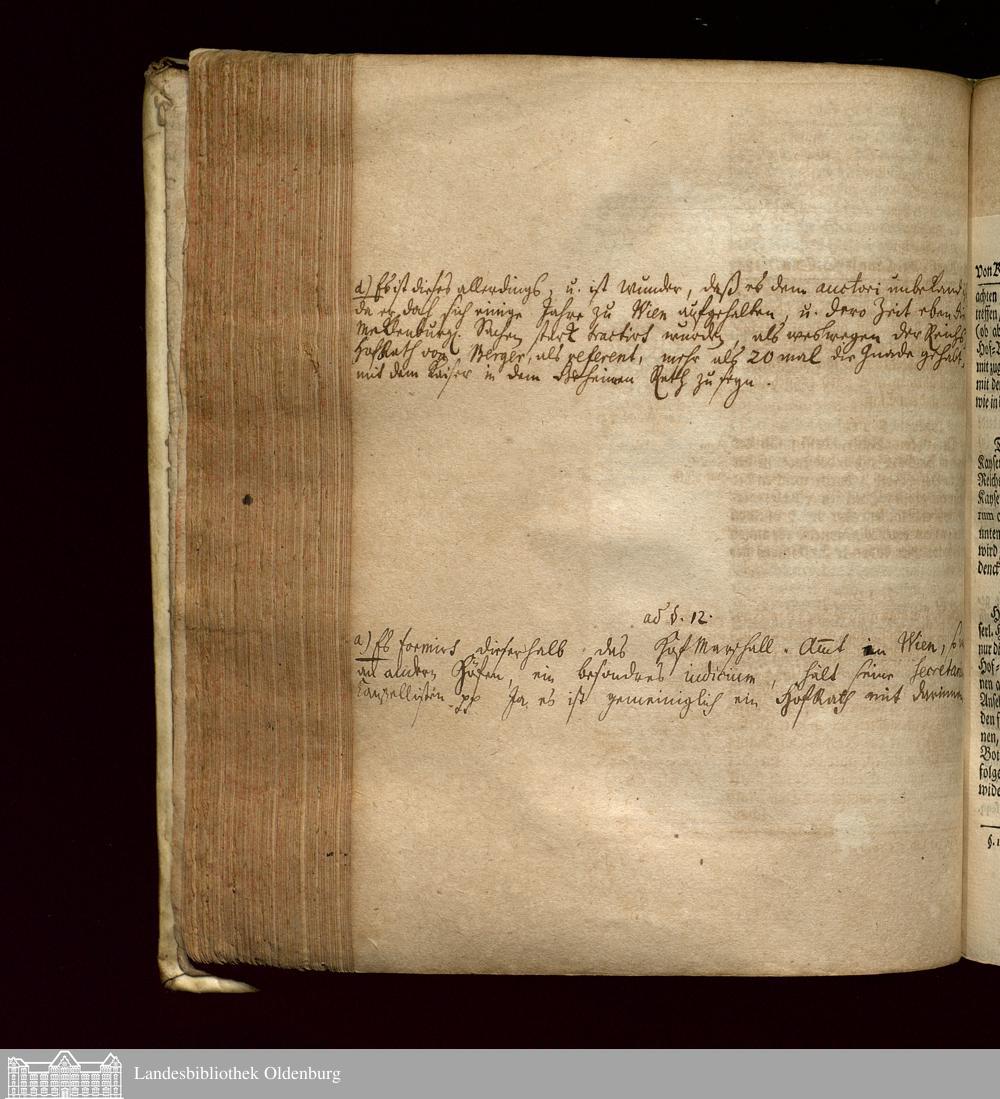 a) Es ist dieses allerdings, u. ist wunder, daß es dem auctori unbekand
da er doch sich einige Jahre zu Wien aufgehalten, u. dero Zeit eben die
Meklenburg. Sachen stark tractirt wurden, als weswegen der Reichs
HofRath von Berger, als referent, mehr als 20 mal die Gnade gehabt,
mit dem Kaiser in dem Geheimen Rath zu seyn.
ad §. 12.
a) Es formirt dieserhalb das Hof Marschall. Amt in Wien, so
an andern Höfen, ein besondres iudicium, hält seine Secretar
Canzellisten pp Ja, es ist gemeiniglich ein HofRath mit darinnen
Von R
achten
treffen
(ob
Hof-
mit zug
mit de
wie in
Kayser
Reichs
Kayse
rum
unten
wird
denck
serl.
nur di
Hof-
nen
Anseh
den
nen,
Bot
folge
wide
§. 1
Landesbibliothek Oldenburg